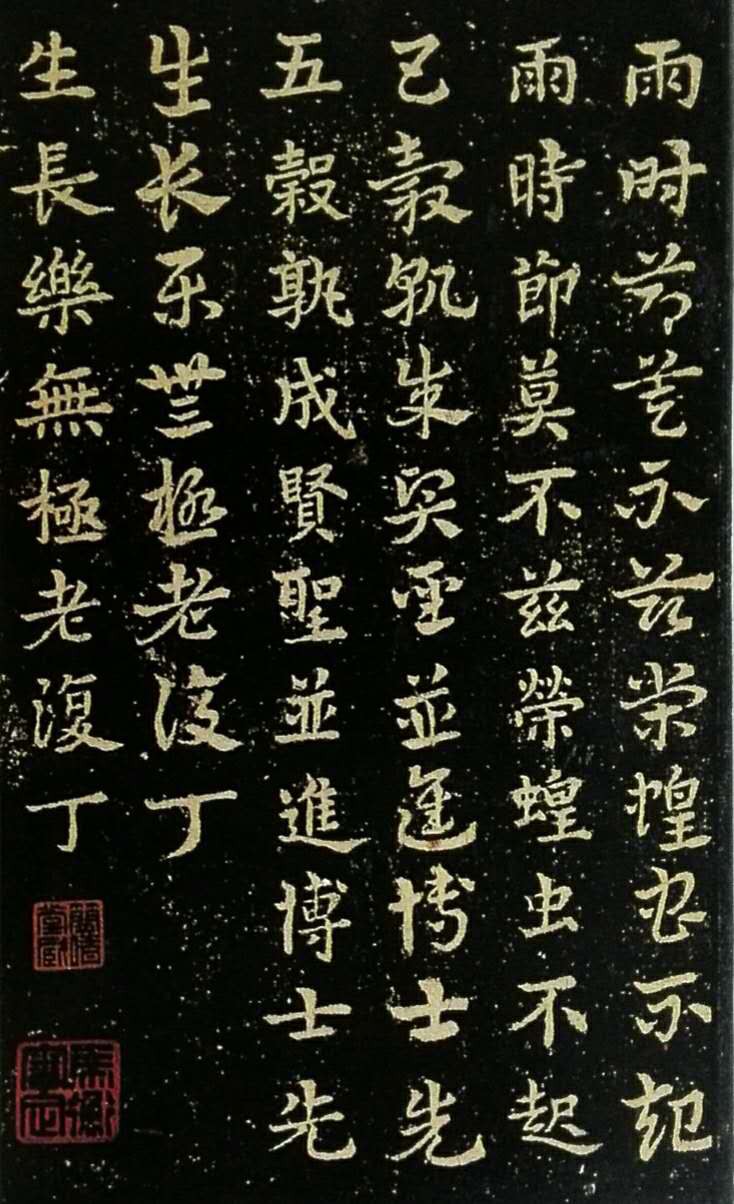 雨时节莫不兹荣蝗虫不起
雨時節莫不兹榮蝗虫不起
五穀孰成賢聖並進博士先
五穀孰成賢聖並進博士先
生长乐無極老復丁
生長樂無極老復丁
馬衡審定